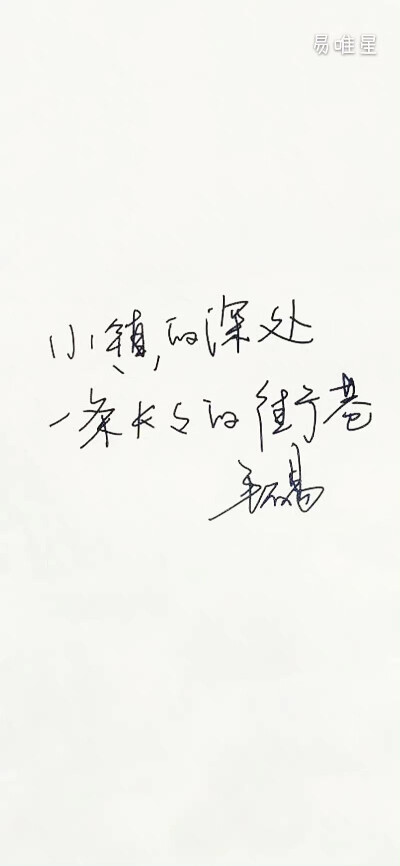 易唯星
小镇的深处
一条长长的街巷